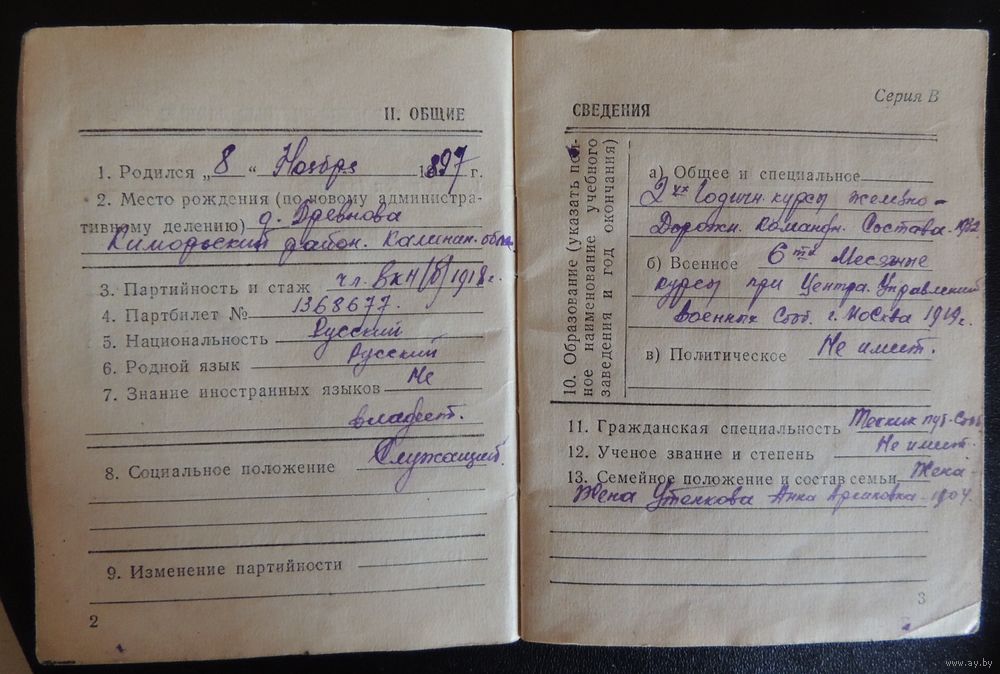 II. ОБЩИЕ
1. Родился „ 8 “ Ноября 1897 г.
2. Место рождения (по новому администра-
тивному делению) д. Древнова
Киморьский район. Калинин. обл.
3. Партийность и стаж чл. ВКП/б/ 1918 г.
4. Партбилет № 1368677.
5. Национальность Русский
6. Родной язык Русский
7. Знание иностранных языков Не
владеет.
8. Социальное положение Служащий.
9. Изменение партийности
2
Серия В
СВЕДЕНИЯ
10. Образование (указать пол-
ное наименование учебного
заведения и год окончания)
а) Общее и специальное
2ух Годичн. курсы железно-
Дорожн. Командн. Состава. 1932
б) Военное 6ти Месячные
курсы при Центра. Управлений
Военных Сооб. г. Москва 1919 г.
в) Политическое Не имеет.
11. Гражданская специальность Техник пут. Сооб.
12. Ученое звание и степень Не имеет.
13. Семейное положение и состав семьи Жена-
Жена Утенкова Анна 1904.
3
www.ay.by